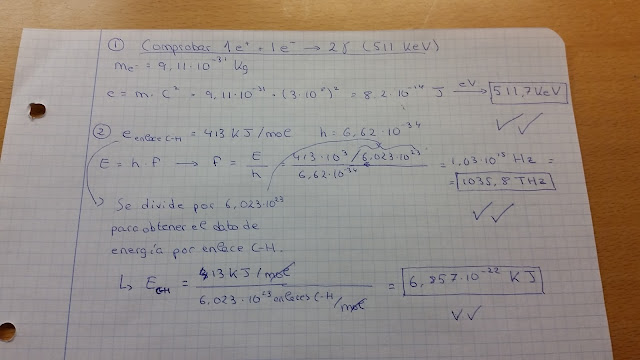 ① Comprobar 1e⁺ + 1e⁻ → 2γ (511 KeV)
me⁻ = 9,11·10⁻³¹ Kg
e = m·c² = 9,11·10⁻³¹ · (3·10⁸)² = 8.2·10⁻¹⁴ J eV→ 511,7 KeV
② e enlace C-H = 413 KJ/mol h = 6,62·10⁻³⁴
E = h·f → f = E/h = 413·10³/6,023·10²³ / 6,62·10⁻³⁴ = 1,03·10¹⁵ Hz =
= 1035,8 THz
Se divide por 6,023·10²³
para obtener el dato de
energía por enlace C-H.
↳ E CH = 413 KJ/mol / 6,023·10²³ enlaces C-H/mol = 6,857·10⁻²² KJ